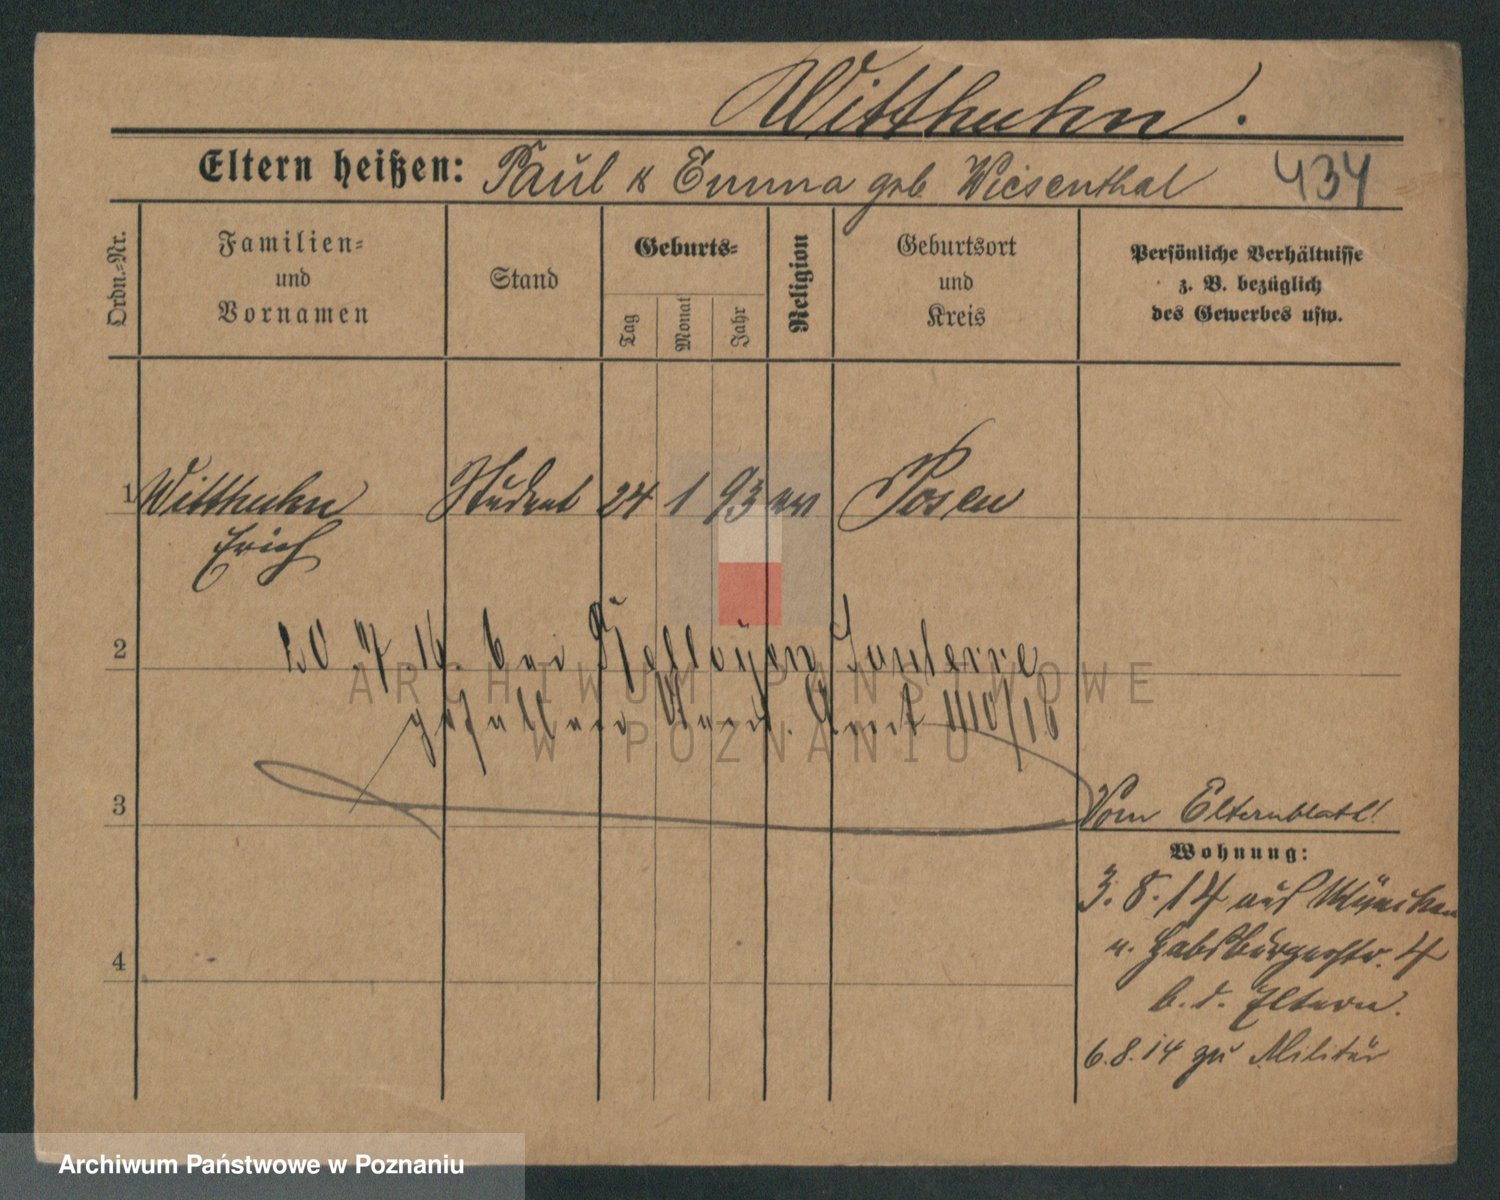 Witthuhn.
Eltern heißen: Paul & Emma geb Wiesenthal 434
Ordn.=Nr.
Familien=
und
Vornamen
Stand
Geburts=
Tag
Monat
Jahr
Religion
Geburtsort
und
Kreis
Persönliche Verhältnisse
z. B. bezüglich
des Gewerbes usw.
1 Witthuhn Student 24 1 93 ev Posen
Erich
2
20 7.16. bei
gefallen Stand. Amt 1110/16
3
Vom Elternblatt!
Wohnung:
3.8.14 aus München
n. Habsburgerstr. 4
b. d. Eltern.
6.8.14 zu Militär
4
ARCHIWUM PAŃSTWOWE
W POZNANIU
Archiwum Państwowe w Poznaniu